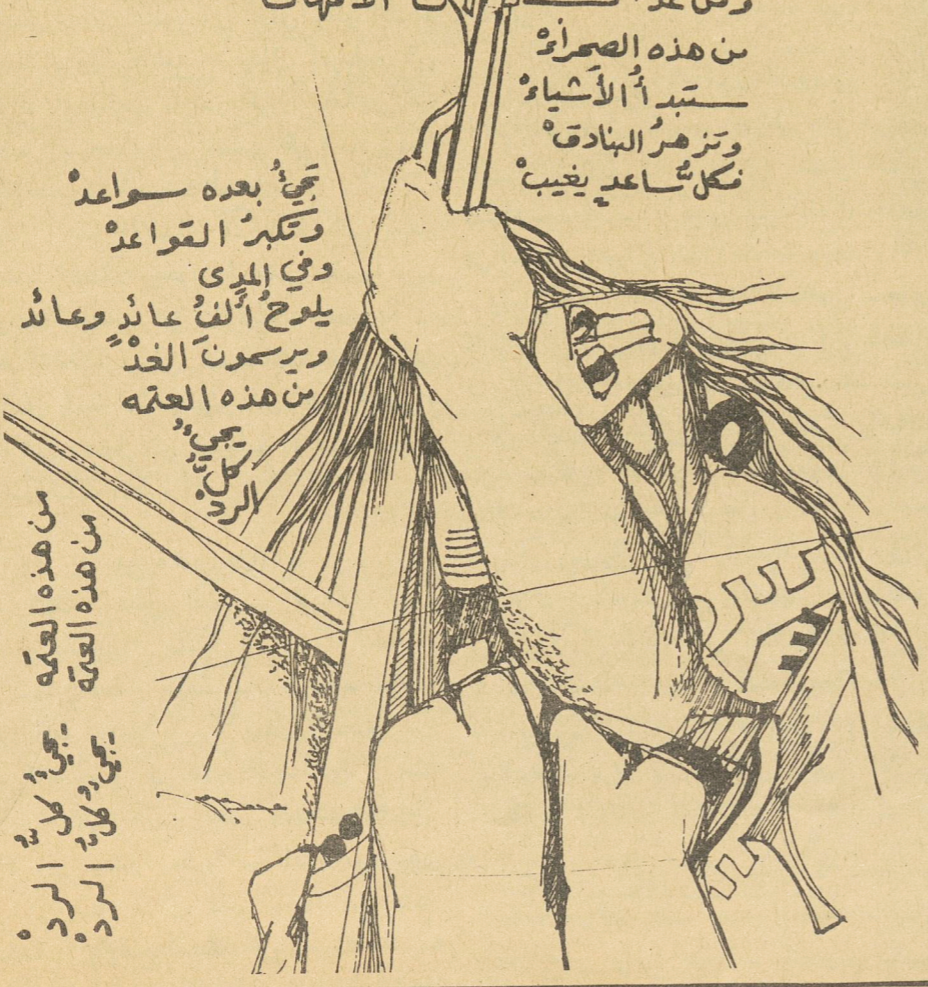 من هذه الصحراءْ
ستبدأُ الأشياءْ
وتزهرُ البنادقْ
فكلُّ ساعدٍ يغيبْ
تجيءُ بعده سواعدْ
وتكبرُ القواعدْ
وفي المدى
يلوحُ ألفُ عائدٍ وعائدْ
ويرسمونَ الغدْ
من هذه العتمه
يجيءُ
كلُّ
الردْ
من هذه العتمه يجيءُ كلُّ الردْ
من هذه العتمه يجيءُ كلُّ الردْ